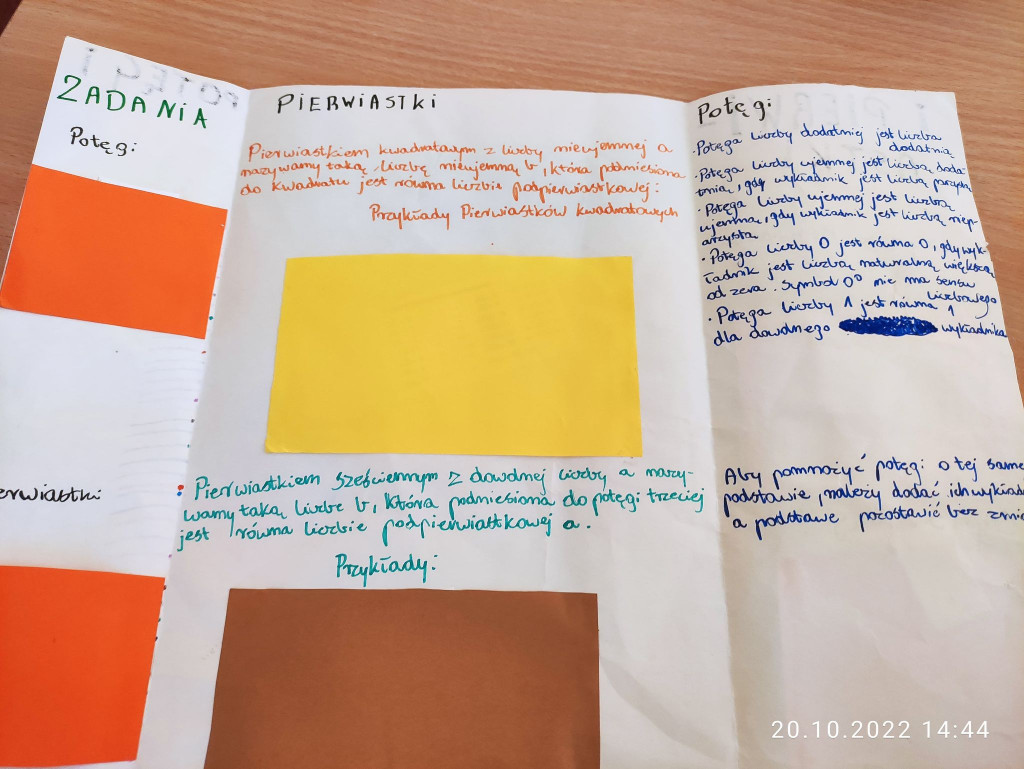 ZADANIA
Potęgi:
erwiastki
PIERWIASTKI
Pierwiastkiem kwadratowym z liczby nieujemnej a
nazywamy taką liczbę nieujemną b, która podniesiona
do kwadratu jest równa liczbie podpierwiastkowej:
Przykłady Pierwiastków kwadratowych
Pierwiastkiem sześciennym z dowolnej liczby a nazy-
wamy taką liczbe b, która podniesiona do potęgi trzeciej
jest równa liczbie podpierwiastkowej a.
Przykłady:
Potęgi
· Potęga liczby dodatniej jest liczba
dodatnią
· Potęga liczby ujemnej jest liczbą doda-
tnią, gdy wykładnik jest liczbą parzys
· Potęga liczby ujemnej jest liczbą
ujemną, gdy wykładnik jest liczbą niep-
arzystą
· Potęga liczby 0 jest równa 0, gdy wyk-
ładnik jest liczbą naturalną większą
od zera. Symbol 0⁰ nie ma sensu
liczbowego
· Potęga liczby 1 jest równa 1
dla dowolnego wykładnika
Aby pomnożyć potęgi o tej same
podstawie, należy dodać ich wykład
a podstawe pozostawić bez zmia
20.10.2022 14:44